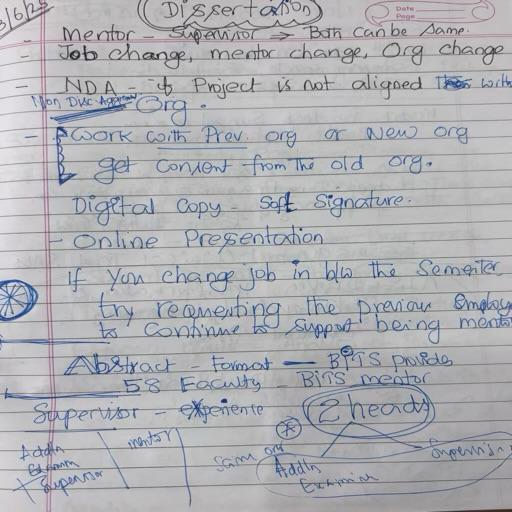 3/6/25
Dissertation
Date
Page
- Mentor - Supervisor → Both can be same.
- Job change, mentor change, Org change
- NDA - if Project is not aligned with
Non Disc Org.
- Work with Prev. org or New org
get consent from the old org.
Digital Copy - Soft Signature.
- Online Presentation
If You change job in b/w the Semester
try requesting the previous Employ
to continue to support being mentor
Abstract - Format - BITS provides
58 Faculty - BITS mentor
Supervisor - experience 2 heads
Addln mentor Same org Addln Supervisor
Examin Examiner
+ Supervisor